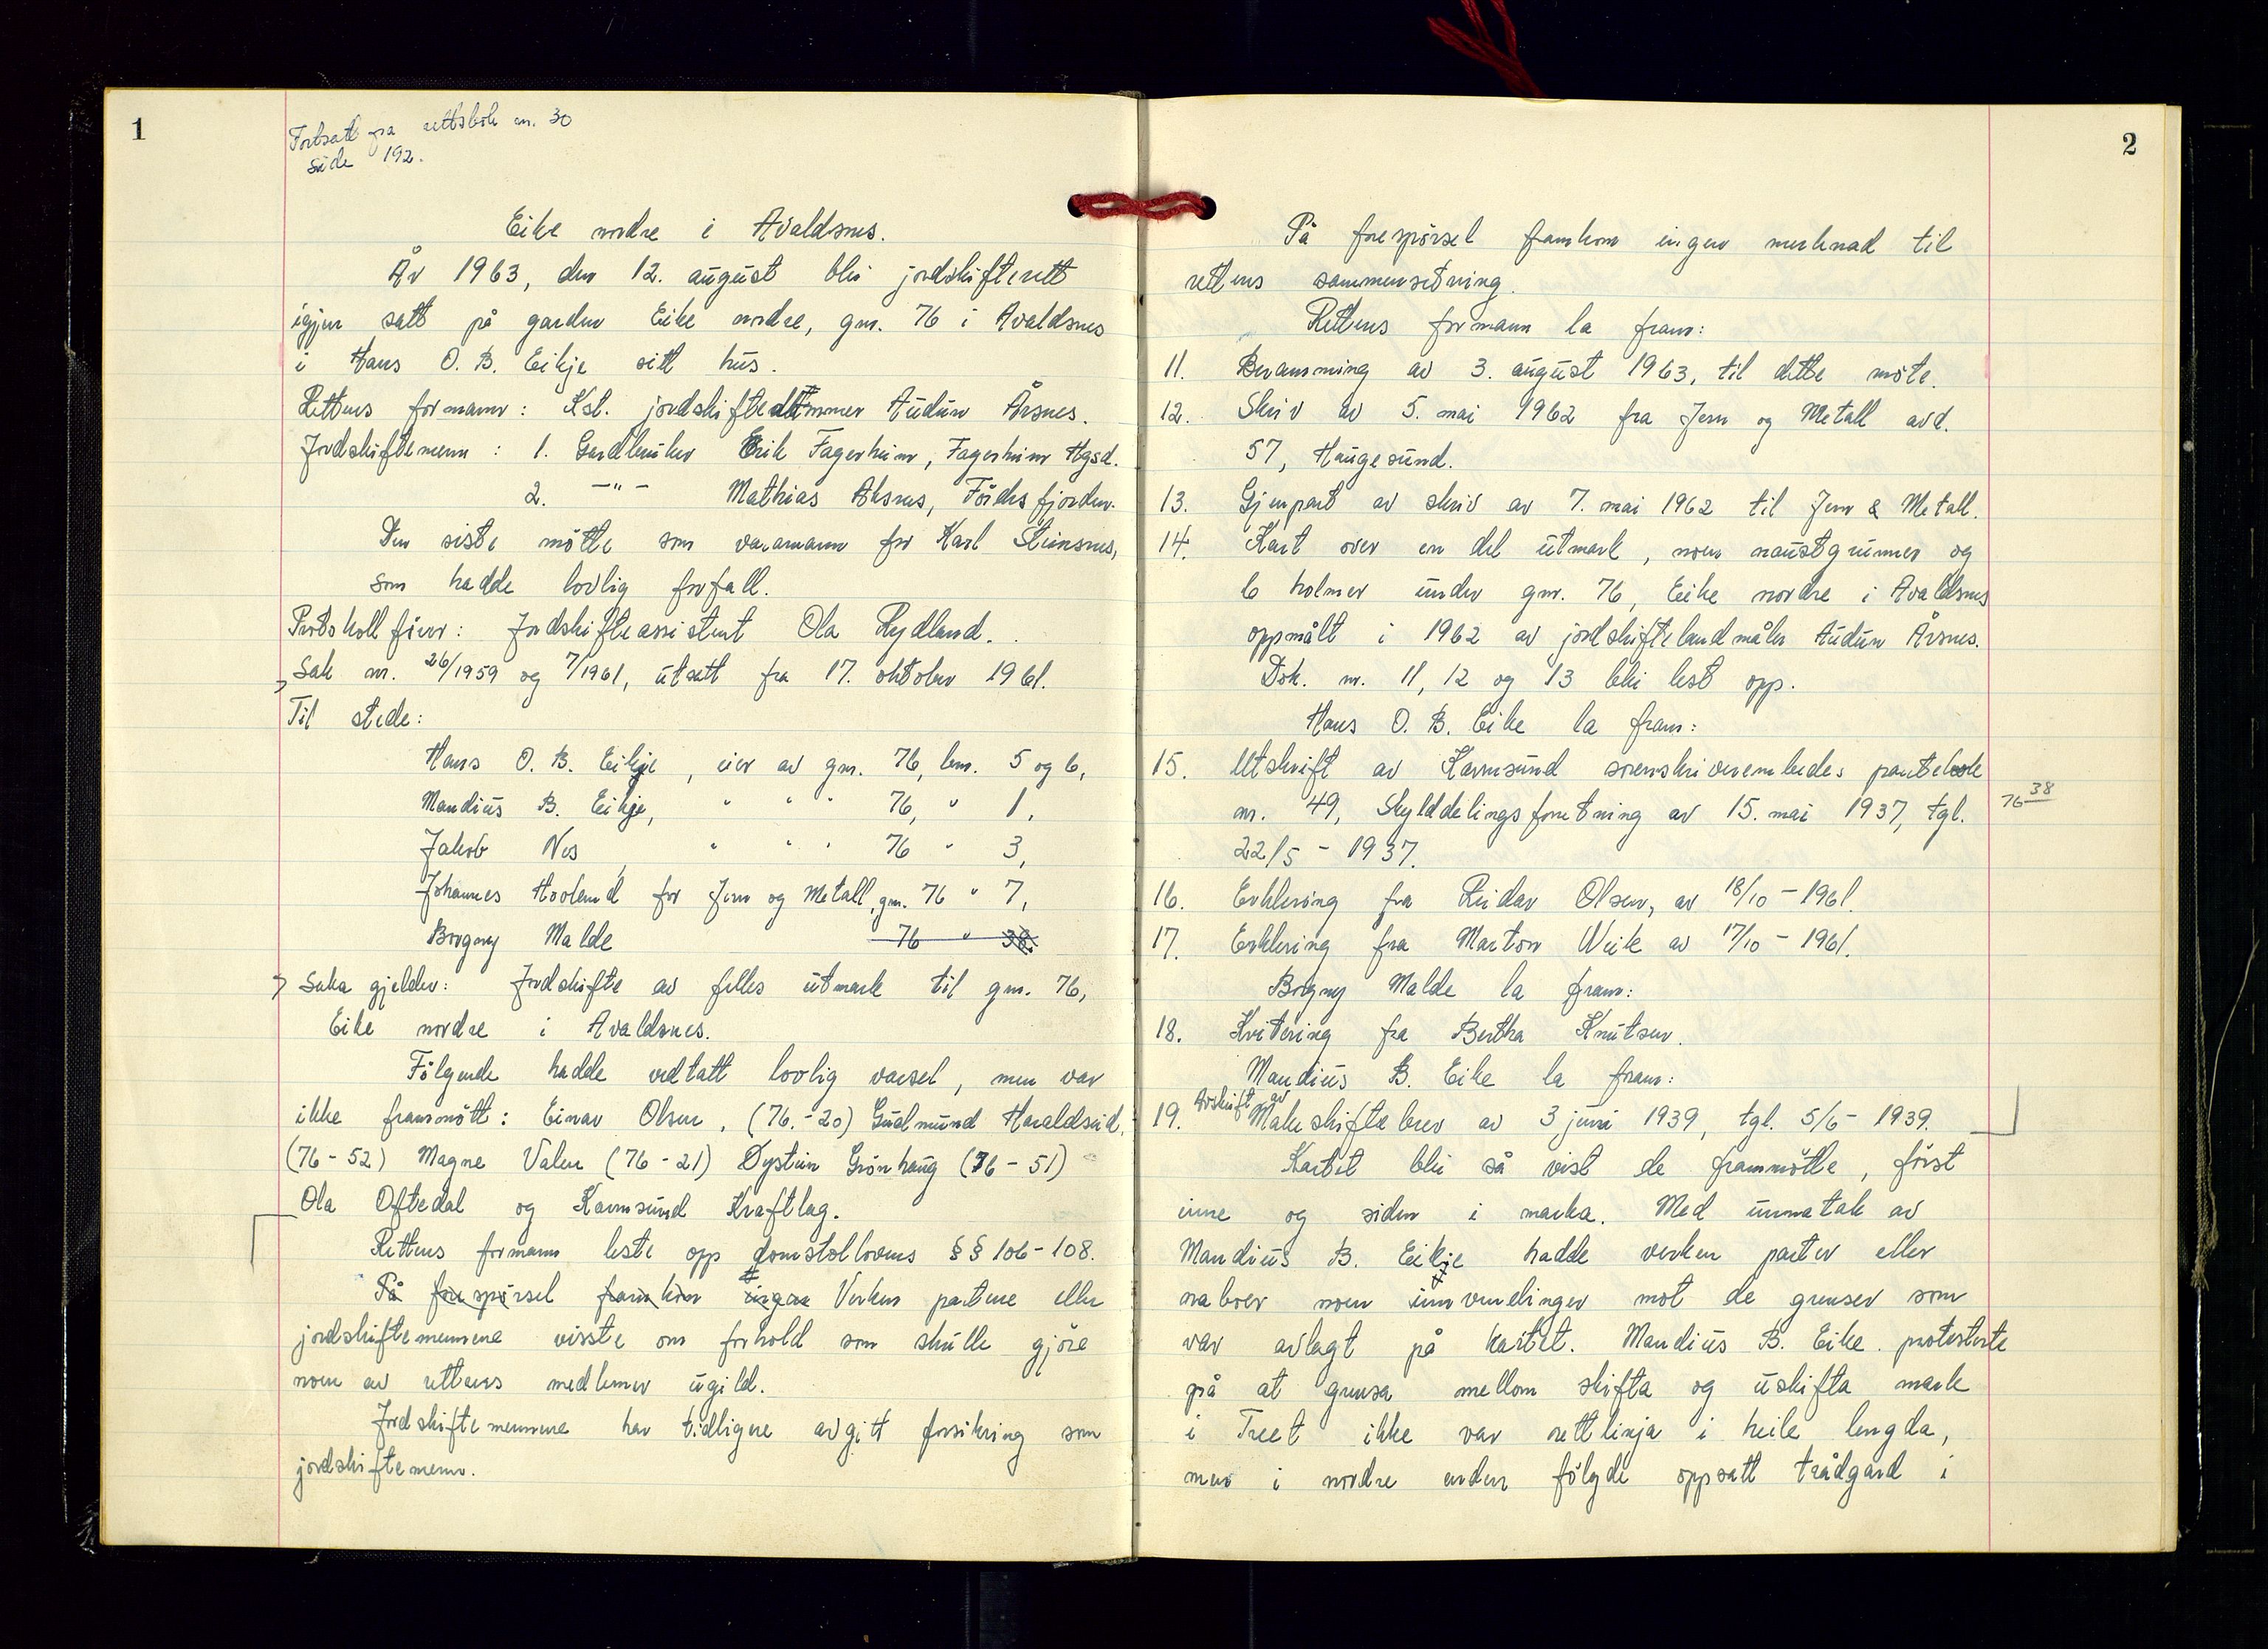 1
Fortsatt fra rettsbok nr. 30
side 192.
Eike nordre i Avaldsnes.
År 1963, den 12. august blei jordskifterett
igjen satt på garden Eike nordre, gnr. 76 i Avaldsnes
i Hans O. B. Eikje sitt hus.
Rettens formann: Kst. jordskiftedommer Audun Årsnes.
Jordskiftemenn: 1. Gardbruker Erik Fagerheim, Fagerheim Hgsd.
2. -"- Mathias Aksnes, Førdesfjorden.
Den siste møtte som varamann for Karl Steinsnes,
som hadde lovlig forfall.
Protokollfører: Jordskifteassistent Ola Rydland.
Sak nr. 26/1959 og 7/1961, utsatt fra 17. oktober 1961.
Til stede:
Hans O. B. Eikje, eier av gnr. 76, bnr. 5 og 6,
Mandius B. Eikje, " " " 76, " 1,
Jakob Nes, " " " 76 " 3,
Johannes Hovland for Jern og Metall, gnr. 76 " 7,
Borgny Malde 76 " 38.
Saka gjelder: Jordskifte av felles utmark til gnr. 76,
Eike nordre i Avaldsnes.
Følgende hadde vedtatt lovlig varsel, men var
ikke frammøtt: Einar Olsen, (76.-20) Gudmund Haraldseid,
(76-52) Magne Valen (76-21) Øystein Grønhaug (76-51)
Ola Oftedal og Karmsund Kraftlag.
Rettens formann leste opp domstollovens §§ 106-108.
På forespørsel framkom ingen Verken partene eller
jordskiftemennene visste om forhold som skulle gjøre
noen av rettens medlemer ugild.
Jordskiftemennene har tidligere avgitt forsikring som
jordskiftemenn.
2
På forespørsel framkom ingen merknad til
rettens sammensetning.
Rettens formann la fram:
11. Beramming av 3. august 1963, til dette møte.
12. Skriv av 5. mai 1962 fra Jern og Metall avd.
57, Haugesund.
13. Gjenpart av skriv av 7. mai 1962 til Jern & Metall.
14. Kart over en del utmark, noen naustgrunner og
6 holmer under gnr. 76, Eike nordre i Avaldsnes
oppmålt i 1962 av jordskiftelandmåler Audun Årsnes.
Dok. nr. 11, 12 og 13 blei lest opp.
Hans O. B. Eike la fram:
15. Utskrift av Karmsund sorenskriverembedes pantebok
nr. 49, Skylddelingsforretning av 15. mai 1937, tgl.
76 38
22/5 - 1937.
16. Erklering fra Reidar Olsen, av 18/10 - 1961.
17. Erklering fra Marton Weik av 17/10 - 1961.
Borgny Malde la fram:
18. Kvitering fra Bertha Knutsen.
Mandius B. Eike la fram:
Avskrift av
19. Makeskiftebrev av 3 juni 1939, tgl. 5/6 - 1939.
Kartet blei så vist de frammøtte, først
inne og siden i marka. Med unnatak av
Mandius B. Eikje hadde verken parter eller
naboer noen innvendinger mot de grenser som
var avlagt på kartet. Mandius B. Eike protesterte
på at grensa mellom skifta og uskifta mark
i Treet ikke var rettlinja i heile lengda,
men i nordre enden følgde oppsatt trådgard i